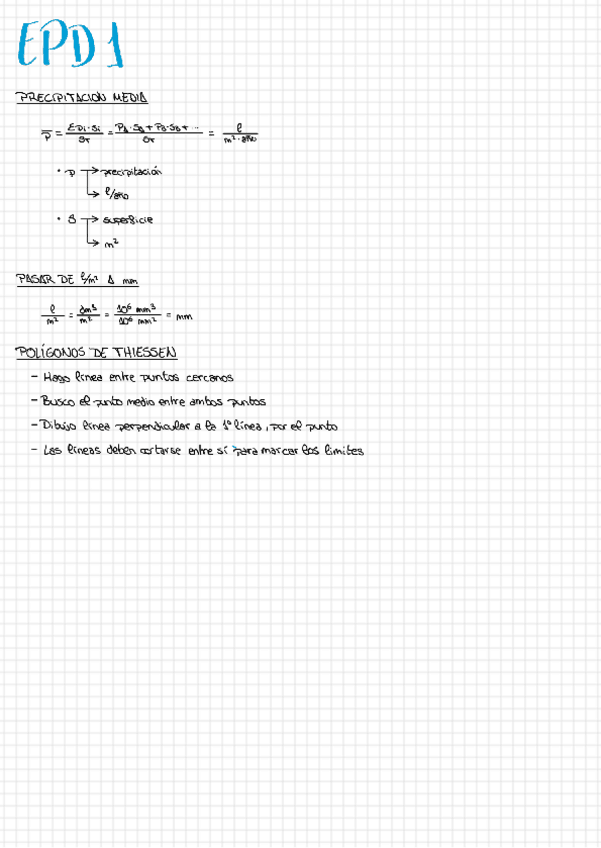 EPD 1
PRECIPITACION MEDIA
p̄ = Σpi·Si / ST = PA·SA + PB·SB + ... / ST = l / m²·año
· p → precipitación
→ l/año
· S → superficie
→ m²
PASAR DE l/m² A mm
l / m² = dm³ / m² = 10⁶ mm³ / 10⁶ mm² = mm
POLÍGONOS DE THIESSEN
- Hago línea entre puntos cercanos
- Busco el punto medio entre ambos puntos
- Dibujo línea perpendicular a la 1º línea, por el punto
- Las líneas deben cortarse entre sí para marcar los limites